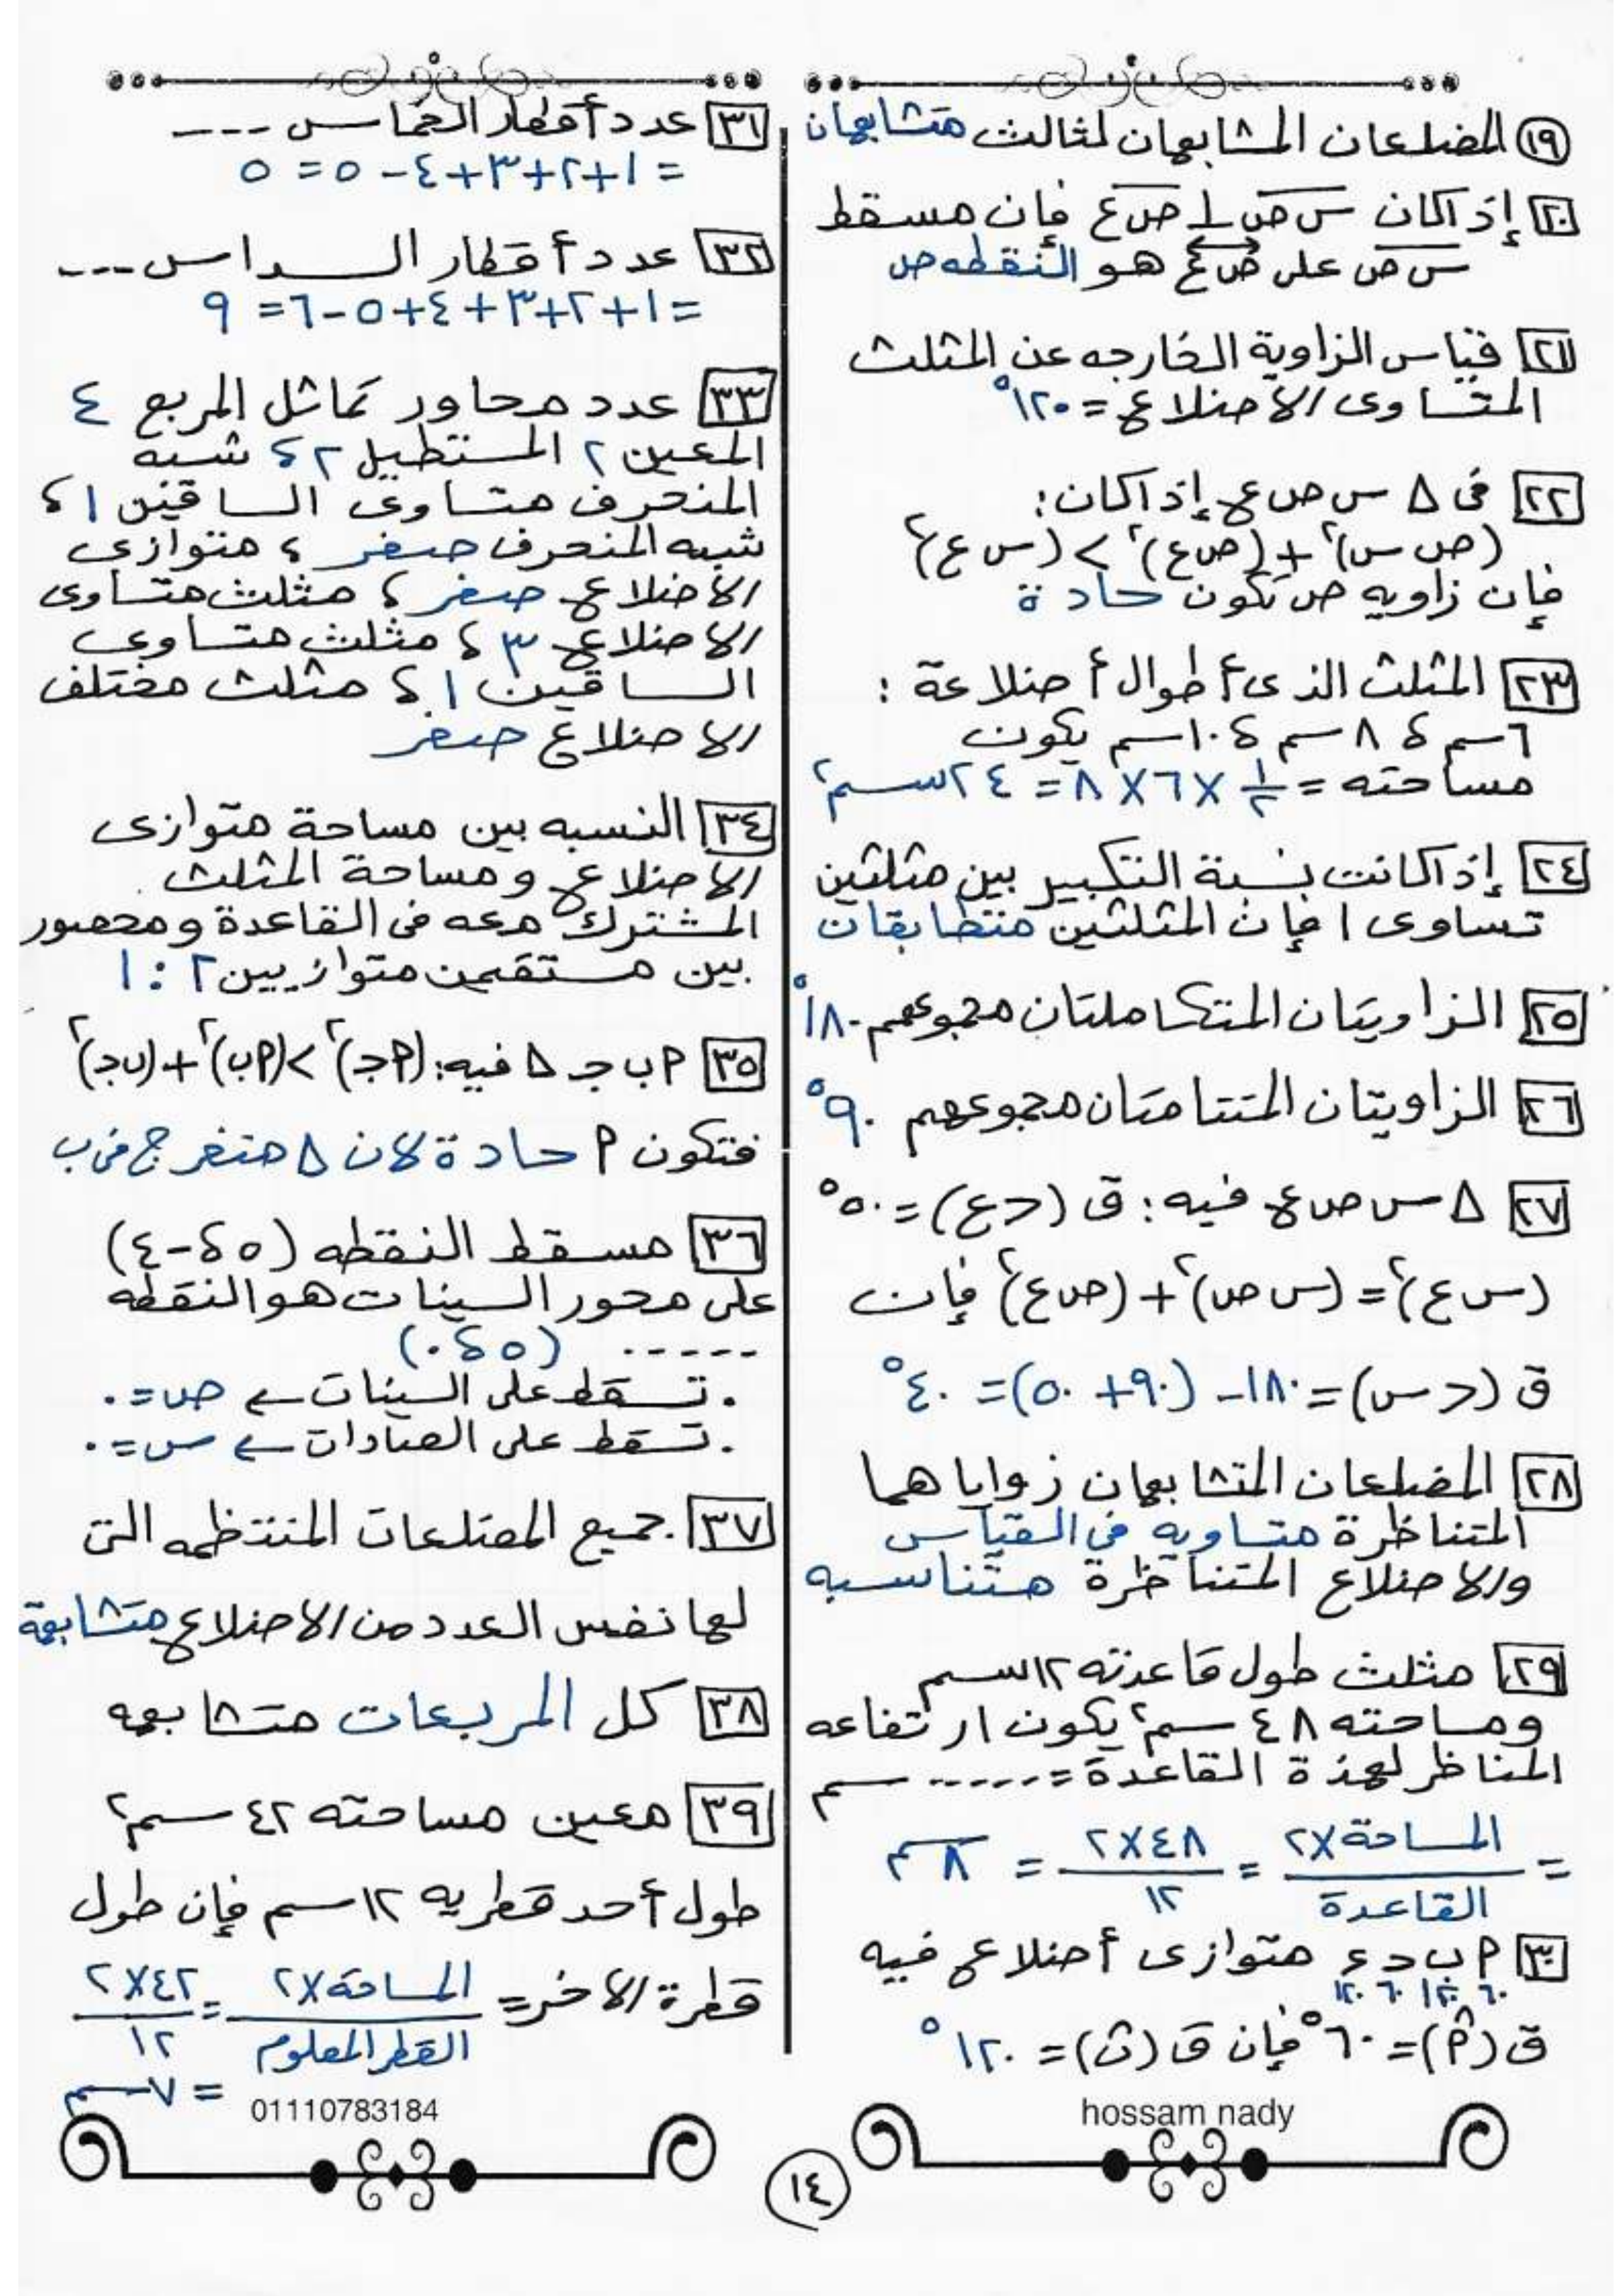 ١٩ المضلعان المشابهان لثالث متشابهان
٢٠ إذا كان س ص ⊥ ص ع فإن مسقط
س ص على ص ع هو النقطه ص
٢١ قياس الزاوية الخارجه عن المثلث
المتساوى الأضلاع = ١٢٠°
٢٢ فى Δ س ص ع إذا كان:
(ص س)² + (ص ع)² > (س ع)²
فإن زاويه ص تكون حادة
٢٣ المثلث الذى أطوال أضلاعة :
٦ سم ، ٨ سم ، ١٠ سم يكون
مساحته = ١/٢ × ٦ × ٨ = ٢٤ سم²
٢٤ إذا كانت نسبة التكبير بين مثلثين
تساوى ١ فإن المثلثين متطابقان
٢٥ الزاويتان المتكاملتان مجموعهم ١٨٠°
٢٦ الزاويتان المتتامتان مجموعهم ٩٠°
٢٧ Δ س ص ع فيه : ق (ع) = ٥٠°
(س ع)² = (س ص)² + (ص ع)² فإن
ق (س) = ١٨٠ - (٩٠ + ٥٠) = ٤٠°
٢٨ المضلعان المتشابهان زواياهما
المتناظرة متساويه فى القياس
والأضلاع المتناظرة متناسبه
٢٩ مثلث طول قاعدته ١٢ سم
ومساحته ٤٨ سم² يكون ارتفاعه
المناظر لهذة القاعدة = ...... سم
= المساحة × ٢ / القاعدة = ٤٨ × ٢ / ١٢ = ٨ سم
٣٠ ٢ ب د ع متوازى أضلاع فيه
٦٠ ١٢٠ ٦٠ ١٢٠
ق (٢) = ٦٠° فإن ق (ب) = ١٢٠°
hossam nady
٣١ عدد أقطار الخماسى ---
= ١+٢+٣+٤-٥ = ٥
٣٢ عدد أقطار السداسى ---
= ١+٢+٣+٤+٥-٦ = ٩
٣٣ عدد محاور تماثل المربع ٤
المعين ٢ المستطيل ٢ ، شبه
المنحرف متساوى الساقين ١ ،
شبه المنحرف صفر ، متوازى
الأضلاع صفر ، مثلث متساوى
الأضلاع ٣ ، مثلث متساوى
الساقين ١ ، مثلث مختلف
الأضلاع صفر
٣٤ النسبه بين مساحة متوازى
الأضلاع ومساحة المثلث
المشترك معه فى القاعدة ومحصور
بين مستقمين متوازيين ٢ : ١
٣٥ ٢ ب جـ Δ فيه: (٢جـ)² > (٢ب)² + (ب جـ)²
فتكون ٢ حادة لأن Δ منفرج فى ب
٣٦ مسقط النقطه (٥ ، -٤)
على محور السينات هو النقطه
----- (٥ ، ٠)
. تسقط على السينات ← ص = ٠
. تسقط على الصادات ← س = ٠
٣٧ جميع المضلعات المنتظمه التى
لها نفس العدد من الأضلاع متشابهة
٣٨ كل المربعات متشابهه
٣٩ معين مساحته ٤٢ سم²
طول أحد قطريه ١٢ سم فإن طول
قطرة الأخر = المساحة × ٢ / القطر المعلوم = ٤٢ × ٢ / ١٢
= ٧ سم
01110783184
١٤